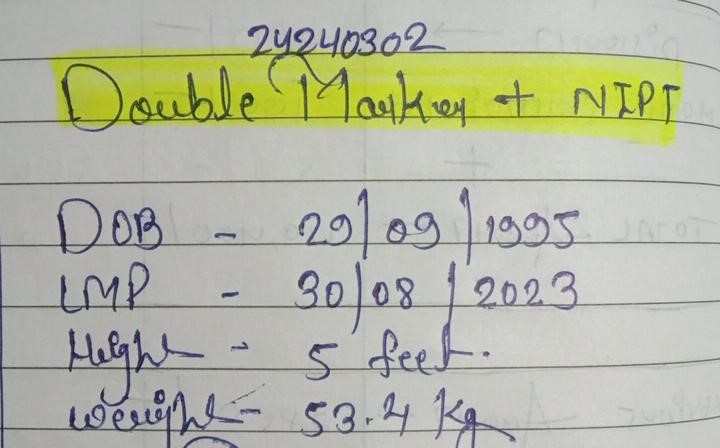 24240302
Double Marker + NIPT
DOB - 29/09/1995
LMP - 30/08/2023
Height - 5 feet.
Weight - 53.4 Kg